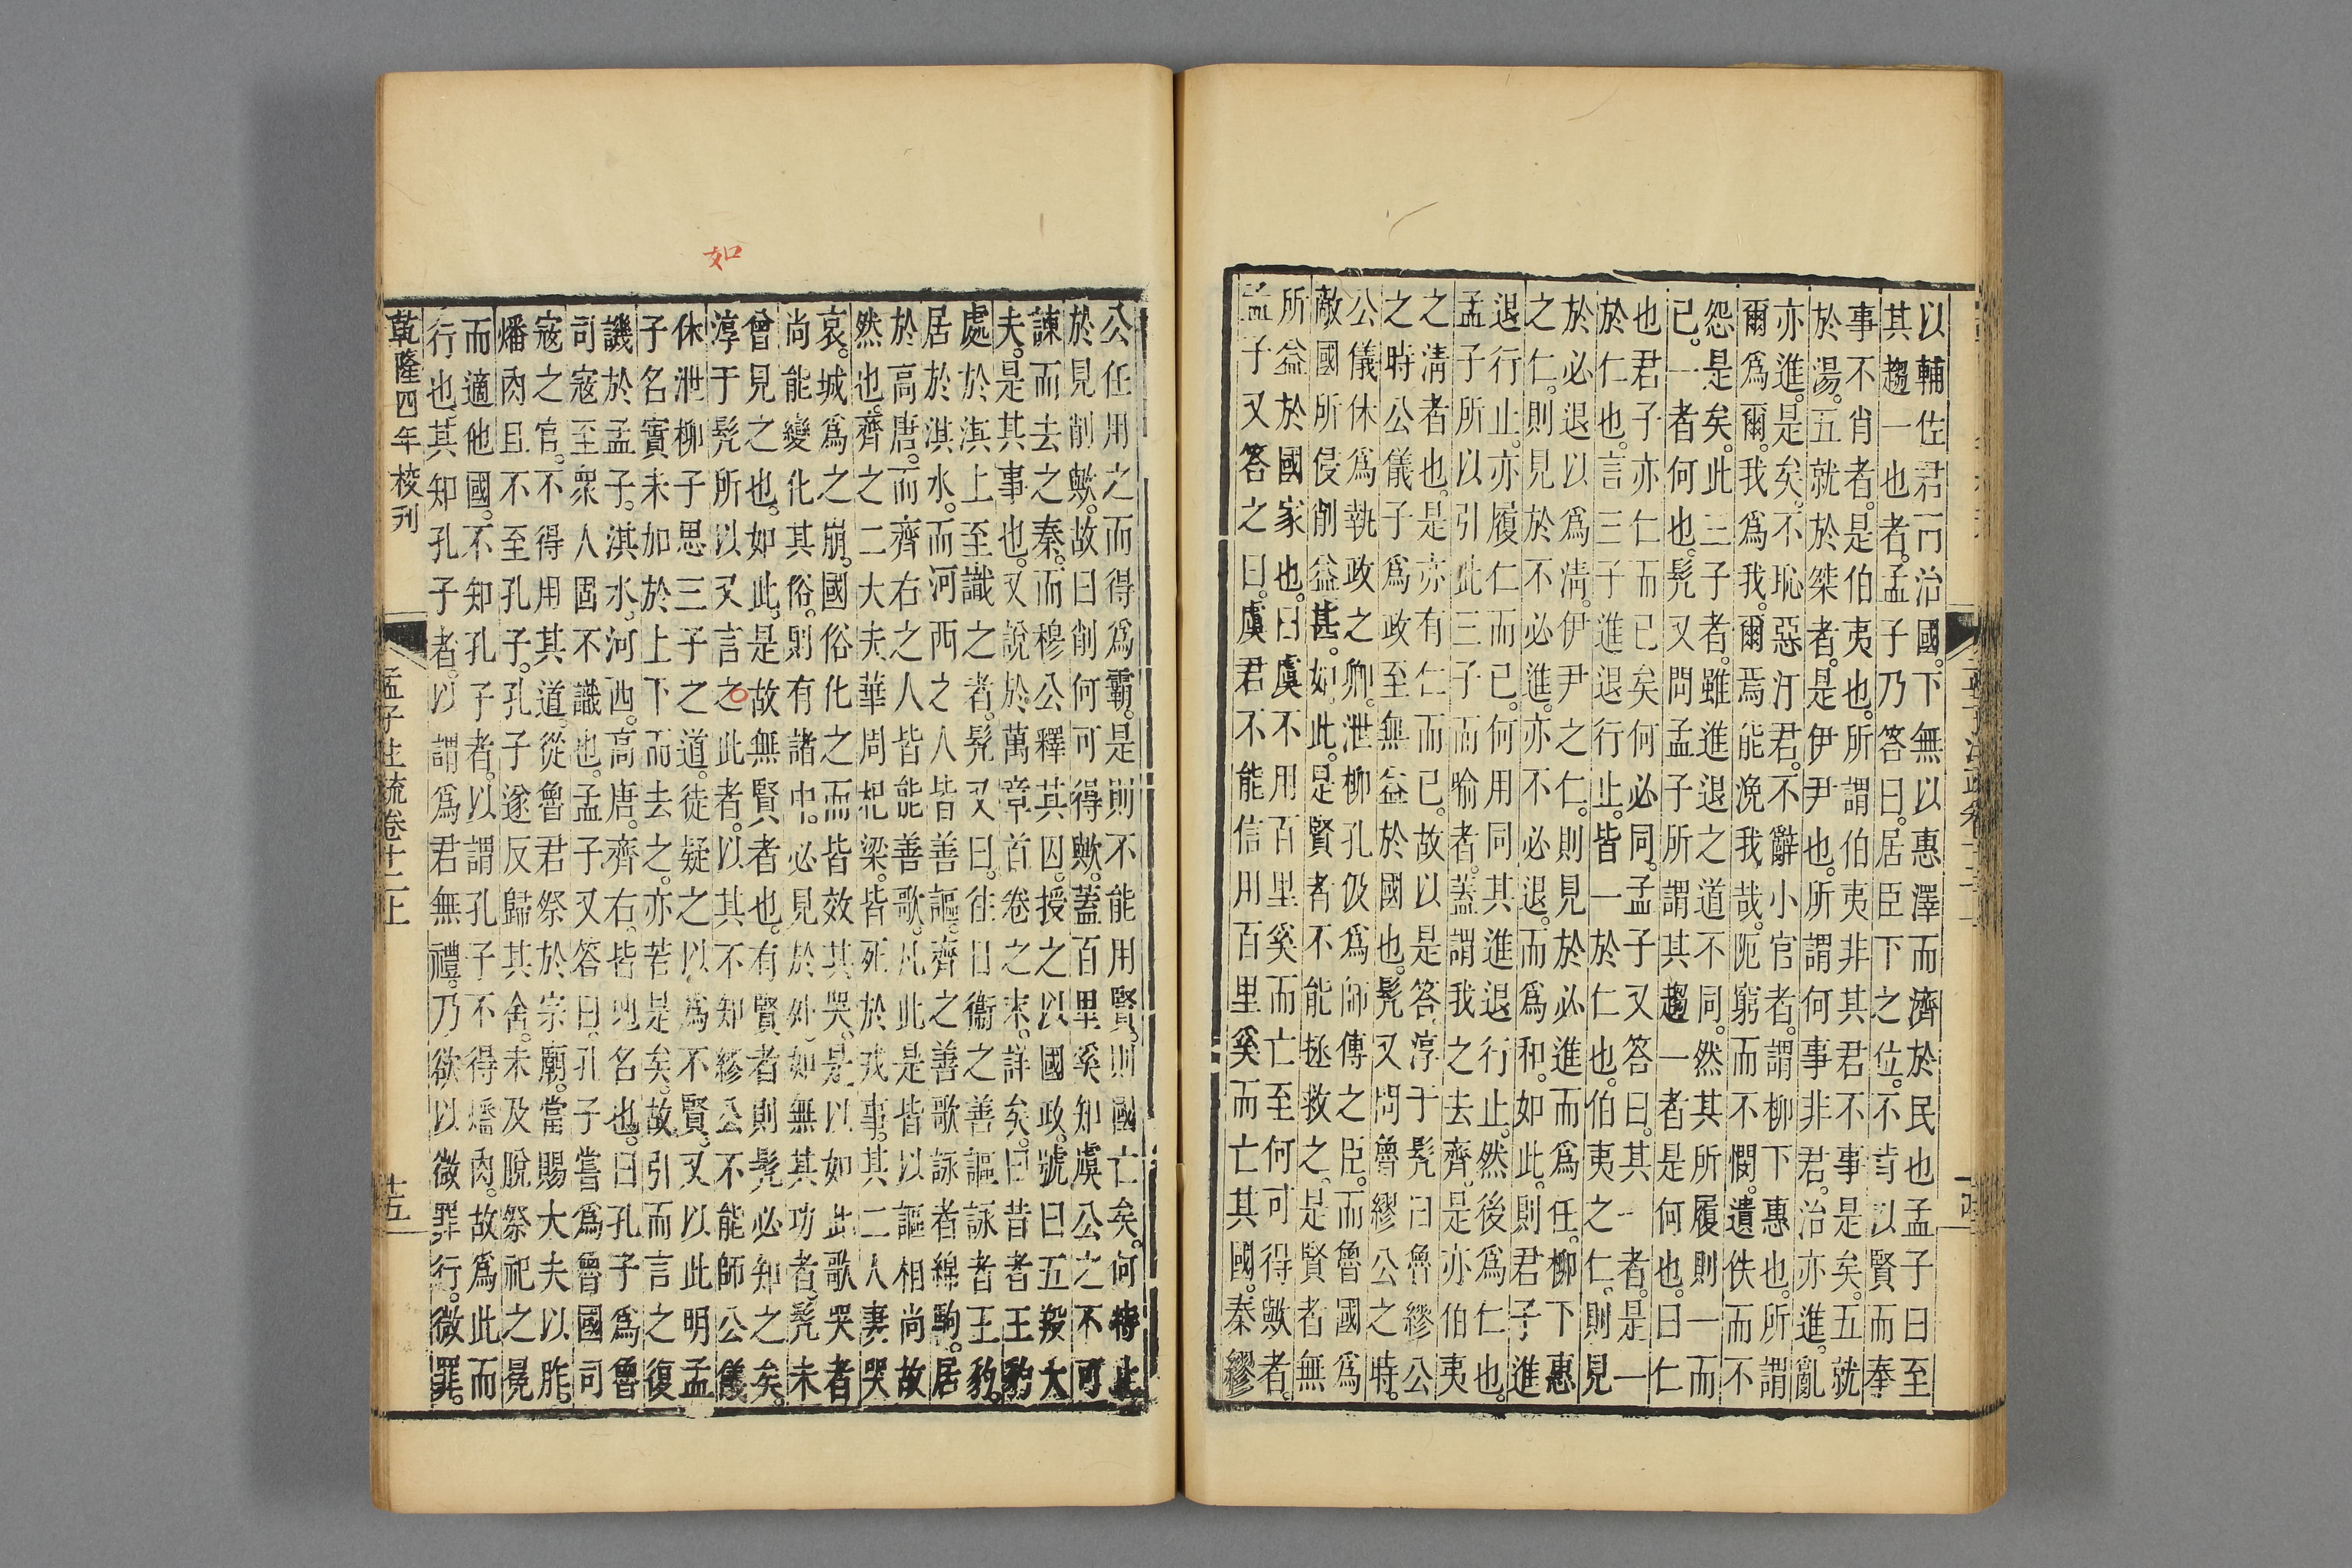 以輔佐君而治國。下無以惠澤而濟於民也孟子曰至
其趨一也者。孟子乃答曰。居臣下之位。不肯以賢而奉
事不肖者。是伯夷也。所謂伯夷非其君不事是矣。五就
於湯。五就於桀者。是伊尹也。所謂何事非君。治亦進。亂
亦進。是矣。不恥惡汙君。不辭小官者。謂柳下惠也。所謂
爾爲爾。我爲我。爾焉能浼我哉。阨窮而不憫。遺佚而不
怨。是矣。此三子者。雖進退之道不同。然其所履則一而
已。一者何也。髡又問孟子所謂其趨一者是何也。曰仁
也君子亦仁而已矣何必同。孟子又答曰。其一者。是一
於仁也。言三子進退行止。皆一於仁也。伯夷之仁。則見
於必退以爲淸。伊尹之仁。則見於必進而爲任。柳下惠
之仁。則見於不必進。亦不必退。而爲和。如此。則君子進
退行止。亦履仁而已。何用同其進退行止。然後爲仁也。
孟子所以引此三子而喻者。蓋謂我之去齊。是亦伯夷
之淸者也。是亦有仁而已。故以是答淳于髡曰魯繆公
之時公儀子爲政至無益於國也。髡又問魯繆公之時。
公儀休爲執政之卿。泄柳孔伋爲師傅之臣。而魯國爲
敵國所侵削益甚。如此。是賢者不能拯救之。是賢者無
所益於國家也。曰虞不用百里奚而亡至何可得歟者。
孟子又答之曰。虞君不能信用百里奚而亡其國。秦繆
公任用之而得爲霸。是則不能用賢。則國亡矣。何特止
於見削歟。故曰削何可得歟。蓋百里奚知虞公之不可
諫而去之秦。而穆公釋其囚。授之以國政。號曰五羖大
夫。是其事也。又說於萬章首卷之末。詳矣。曰昔者王豹
處於淇上至識之者。髡又曰。往日衞之善謳詠者王豹。
居於淇水。而河西之人皆善謳。齊之善歌詠者綿駒。居
於高唐。而齊右之人皆能善歌。凡此是皆以謳相尚故
然也。齊之二大夫華周杞梁。皆死於戎事。其二人妻哭
哀。城爲之崩。國俗化之而皆效其哭。是以如此歌哭者
尚能變化其俗。則有諸中。必見於外。如無其功者。髡未
曾見之也。如此。是故無賢者也。有賢者則髡必知之矣。
淳于髡所以又言之此者。以其不知繆公不能師公儀
休泄柳子思三子之道。徒疑之以爲不賢。又以此明孟
子名實未加於上下而去之。亦若是矣。故引而言之復
譏於孟子。淇水。河西。高唐。齊右。皆地名也。曰孔子爲魯
司寇至衆人固不識也。孟子又答曰。孔子嘗爲魯國司
寇之官。不得用其道。從魯君祭於宗廟。當賜大夫以胙。
燔肉且不至孔子。孔子遂反歸其舍。未及脫祭祀之冕
而適他國。不知孔子者。以謂孔子不得燔肉。故爲此而
行也。其知孔子者。以謂爲君無禮。乃欲以微罪行。微罪。
乾隆四年校刊
孟子注疏卷十二上
十五
如